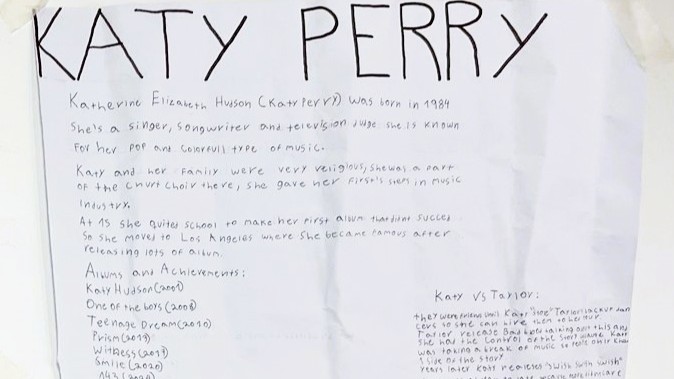 KATY PERRY
Katherine Elizabeth Hudson (Katy Perry) was born in 1984
She's a singer, songwriter and television Judge she is known
For her pop and colorfull type of music.
Katy and her family were very religious, she was a part
of the church choir there, she gave her first's steps in music
industry.
At 15 she quited school to make her first album that didnt succed
so she moved to Los Angeles where she became famous after
releasing lots of album.
Albums and Achievements:
Katy Hudson (2001)
One of the boys (2008)
Teenage Dream (2010)
Prism (2013)
Witness (2017)
Smile (2020)
143 (2024)
Katy vs Taylor:
they were friends until Katy "stole" Taylor backup dan
cers so she can hire them to her tour
Taylor release Bad blood talking about this and
She had the control of the story because Katy
was taking a break of music so people only knew
1 side of the story
years later Katy realeses "Swish Swish"